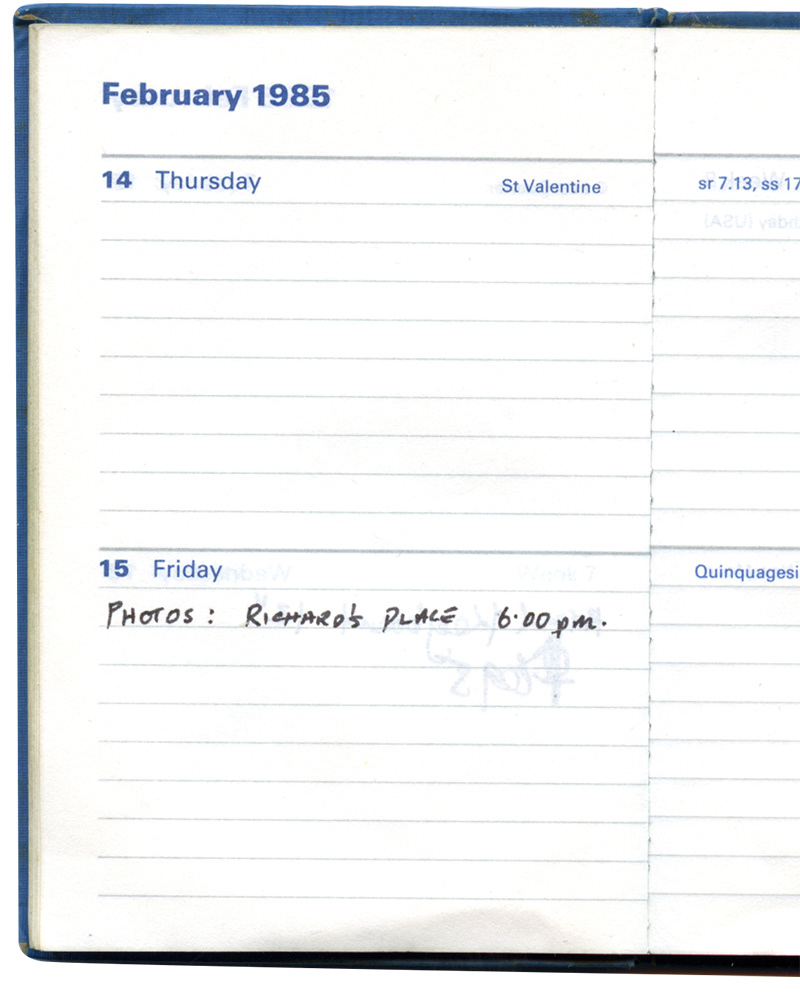 February 1985
14 Thursday St Valentine
15 Friday
PHOTOS: RICHARD'S PLACE 6.00 pm.
sr 7.13, ss 17
Quinquagesi